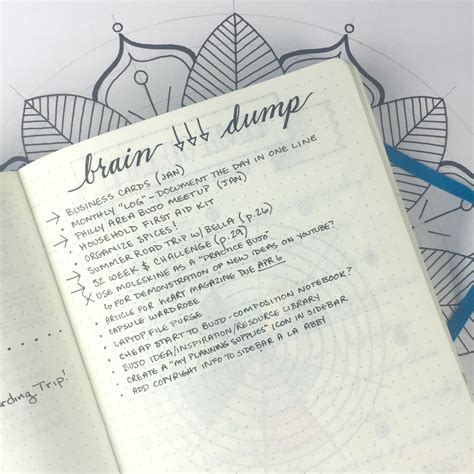 brain ↓↓↓ dump
→ BUSINESS CARDS (JAN)
MONTHLY "LOG" - DOCUMENT THE DAY IN ONE LINE
PHILLY AREA BUJO MEETUP (JAN)
→ HOUSEHOLD FIRST AID KIT
ORGANIZE SPICES!
→ SUMMER ROAD TRIP W/ BELLA (p.26)
→ 52 WEEK $ CHALLENGE (p.29)
X USE MOLESKINE AS A "PRACTICE BUJO"
↳ FOR DEMONSTRATION OF NEW IDEAS ON YOUTUBE?
• ARTICLE FOR HEART MAGAZINE DUE APR 6
• CAPSULE WARDROBE
• LAPTOP FILE PURGE
• CHEAP START TO BUJO - COMPOSITION NOTEBOOK?
• BUJO IDEA/INSPIRATION/RESOURCE LIBRARY
• CREATE A "MY PLANNING SUPPLIES" ICON IN SIDEBAR
• ADD COPYRIGHT INFO TO SIDEBAR A LA ABBY
Trip!